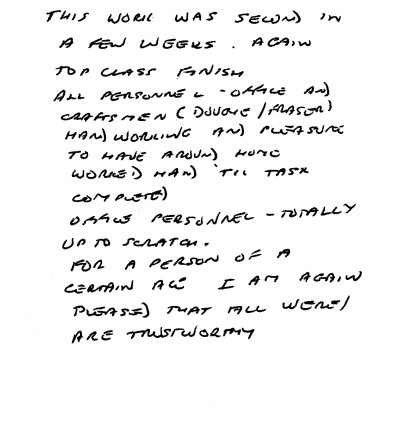 THIS WORK WAS SECOND IN
A FEW WEEKS. AGAIN
TOP CLASS FINISH
ALL PERSONNEL - OFFICE AND
CRAFTSMEN (DOUGIE/FRASER)
HARD WORKING AND PLEASURE
TO HAVE AROUND HOME
WORKED HARD 'TIL TASK
COMPLETED
OFFICE PERSONNEL - TOTALLY
UP TO SCRATCH.
FOR A PERSON OF A
CERTAIN AGE I AM AGAIN
PLEASED THAT ALL WERE/
ARE TRUSTWORTHY